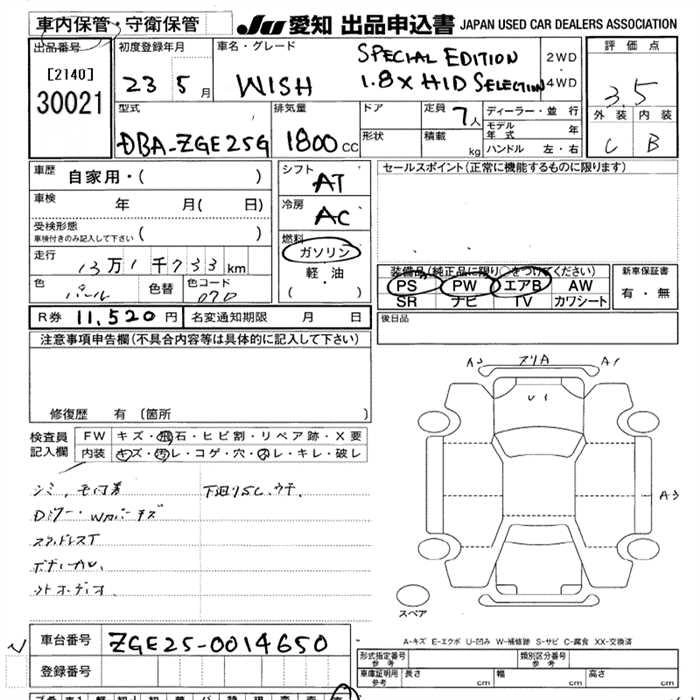 車内保管・守衛保管
JU 愛知 出品申込書 JAPAN USED CAR DEALERS ASSOCIATION
出品番号
[2140]
30021
初度登録年月
23 5月
車名・グレード
WISH
SPECIAL EDITION
1.8X HID SELECTION
2WD
4WD
評価点
3.5
外装 内装
C B
型式
DBA-ZGE25G
排気量
1800cc
ドア
形状
定員 7人
積載 kg
ディーラー・並行
モデル年式 年
ハンドル 左・右
車歴 自家用・( )
車検 年 月( 日)
受検形態
車検付きのみ記入して下さい ( )
走行 13万1千733km
色 パール 色替 色コード 070
シフト AT
冷房 AC
燃料
ガソリン
軽・油
( ・ )
セールスポイント(正常に機能するものに限ります)
装備品(純正品に限り○をつけてください)
PS PW エアB AW
SR ナビ TV カワシート
新車保証書
有・無
R券 11,520円 名変通知期限 月 日
後日品
注意事項申告欄(不具合内容等は具体的に記入して下さい)
修復歴 有 (箇所 )
検査員記入欄
FW キズ・飛石・ヒビ割・リペア跡・X要
内装 キズ・汚レ・コゲ・穴・スレ・キレ・破レ
U1
A1
A3
スペア
A-キズ E-エクボ U-凹み W-補修跡 S-サビ C-腐食 XX-交換済
車台番号 ZGE25-0014650
登録番号
形式指定番号 参考
類別区分番号 参考
車庫証明用 参考 長さ cm 幅 cm 高さ cm